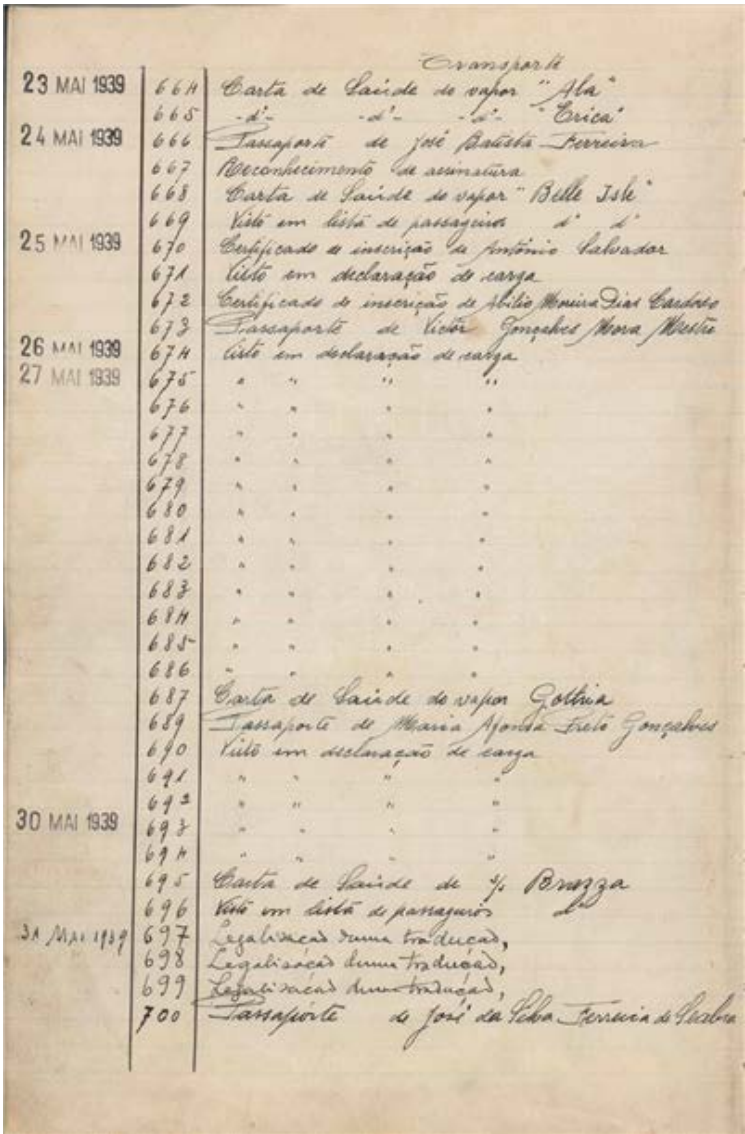 Transporte
23 MAI 1939 664 Carta de Saúde do vapor "Ala"
665 -d°- -d°- -d°- "Erica"
24 MAI 1939 666 Passaporte de José Batista Ferreira
667 Reconhecimento de assinatura
668 Carta de Saúde do vapor "Belle Isle"
669 Visto em lista de passageiros d° d°
25 MAI 1939 670 Certificado de inscrição de António Salvador
671 Visto em declaração de carga
672 Certificado de inscrição de Abilio Moreira Dias Cardoso
673 Passaporte de Victor Gonçalves Mora Mestre
26 MAI 1939 674 Visto em declaração de carga
27 MAI 1939 675 " " " "
676 " " " "
677 " " " "
678 " " " "
679 " " " "
680 " " " "
681 " " " "
682 " " " "
683 " " " "
684 " " " "
685 " " " "
686 " " " "
687 Carta de Saúde do vapor
689 Passaporte de Maria Afonso Gonçalves
690 Visto em declaração de carga
691 " " " "
692 " " " "
30 MAI 1939 693 " " " "
694 " " " "
695 Carta de Saúde de s/s Brazza
696 Visto em lista de passageiros d°
31 MAI 1939 697 Legalisação duma tradução,
698 Legalisação duma tradução,
699 Legalisação duma tradução,
700 Passaporte de José da Silva Ferreira de Seabra